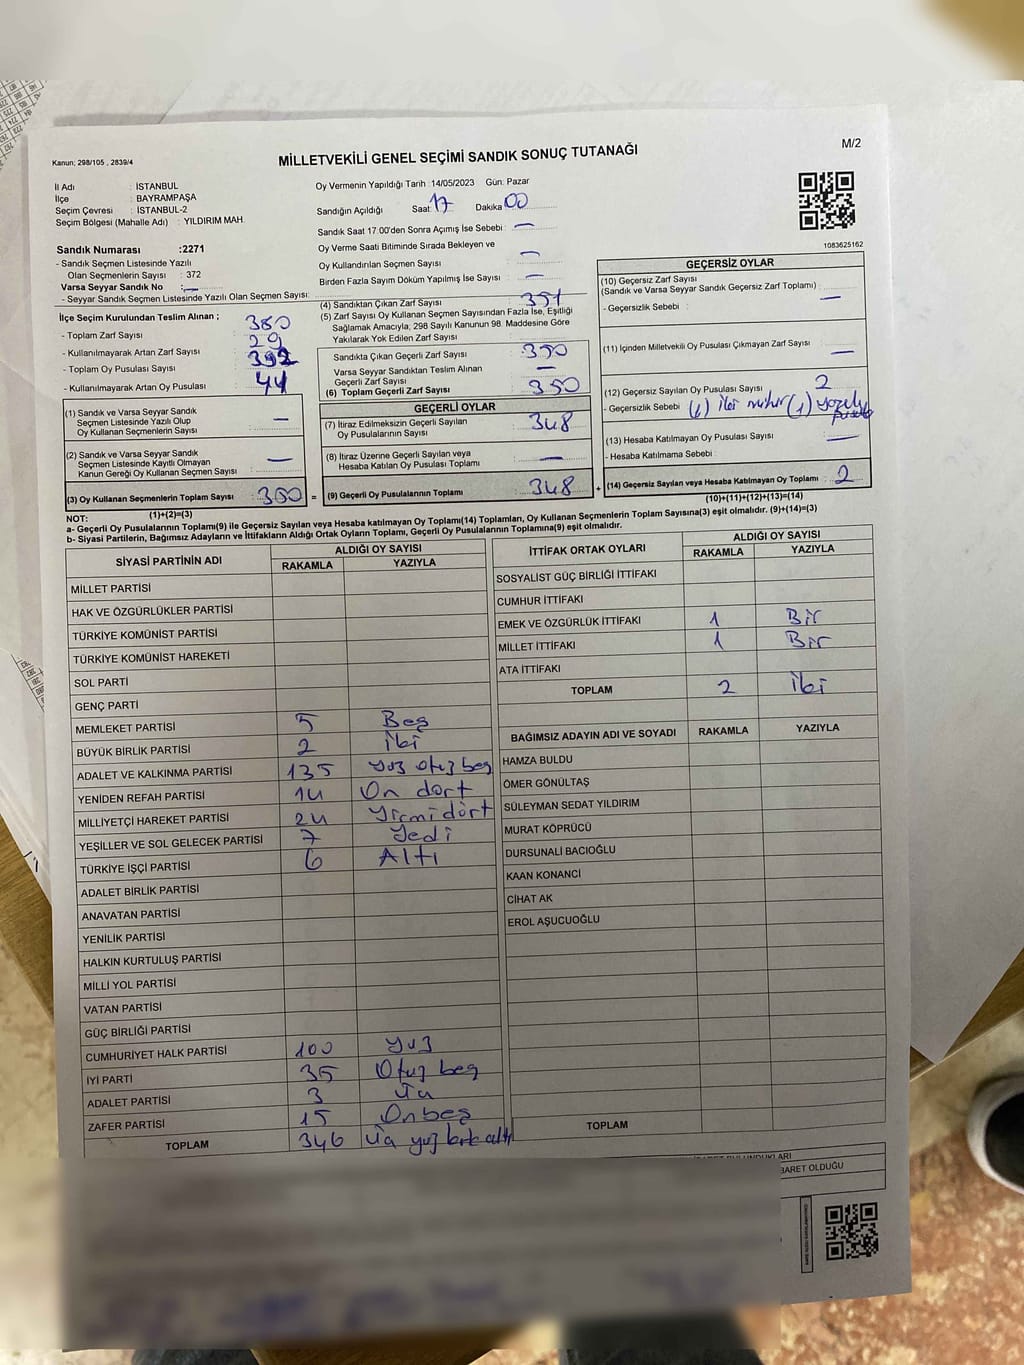 Kanun; 298/105 , 2839/4
MİLLETVEKİLİ GENEL SEÇİMİ SANDIK SONUÇ TUTANAĞI
M/2
İl Adı : İSTANBUL
İlçe : BAYRAMPAŞA
Seçim Çevresi : İSTANBUL-2
Seçim Bölgesi (Mahalle Adı) : YILDIRIM MAH.
Sandık Numarası :2271
- Sandık Seçmen Listesinde Yazılı
Olan Seçmenlerin Sayısı : 372
Varsa Seyyar Sandık No : —
- Seyyar Sandık Seçmen Listesinde Yazılı Olan Seçmen Sayısı:
Oy Vermenin Yapıldığı Tarih :14/05/2023 Gün: Pazar
Sandığın Açıldığı Saat: 17 Dakika 00
Sandık Saat 17:00'den Sonra Açımış İse Sebebi : —
Oy Verme Saati Bitiminde Sırada Bekleyen ve
Oy Kullandırılan Seçmen Sayısı —
Birden Fazla Sayım Döküm Yapılmış İse Sayısı —
1083625162
İlçe Seçim Kurulundan Teslim Alınan ;
- Toplam Zarf Sayısı 380
- Kullanılmayarak Artan Zarf Sayısı 29
- Toplam Oy Pusulası Sayısı 392
- Kullanılmayarak Artan Oy Pusulası 44
(1) Sandık ve Varsa Seyyar Sandık
Seçmen Listesinde Yazılı Olup
Oy Kullanan Seçmenlerin Sayısı : —
(2) Sandık ve Varsa Seyyar Sandık
Seçmen Listesinde Kayıtlı Olmayan
Kanun Gereği Oy Kullanan Seçmen Sayısı : —
(3) Oy Kullanan Seçmenlerin Toplam Sayısı : 350
(1)+(2)=(3)
(4) Sandıktan Çıkan Zarf Sayısı : 351
(5) Zarf Sayısı Oy Kullanan Seçmen Sayısından Fazla İse, Eşitliği
Sağlamak Amacıyla, 298 Sayılı Kanunun 98. Maddesine Göre
Yakılarak Yok Edilen Zarf Sayısı :
Sandıkta Çıkan Geçerli Zarf Sayısı : 350
Varsa Seyyar Sandıktan Teslim Alınan
Geçerli Zarf Sayısı : —
(6) Toplam Geçerli Zarf Sayısı : 350
GEÇERLİ OYLAR
(7) İtiraz Edilmeksizin Geçerli Sayılan
Oy Pusulalarının Sayısı : 348
(8) İtiraz Üzerine Geçerli Sayılan veya
Hesaba Katılan Oy Pusulası Toplamı : —
= (9) Geçerli Oy Pusulalarının Toplamı : 348 +
GEÇERSİZ OYLAR
(10) Geçersiz Zarf Sayısı
(Sandık ve Varsa Seyyar Sandık Geçersiz Zarf Toplamı) : —
- Geçersizlik Sebebi :
(11) İçinden Milletvekili Oy Pusulası Çıkmayan Zarf Sayısı : —
(12) Geçersiz Sayılan Oy Pusulası Sayısı : 2
- Geçersizlik Sebebi
(13) Hesaba Katılmayan Oy Pusulası Sayısı : —
- Hesaba Katılmama Sebebi :
(14) Geçersiz Sayılan veya Hesaba Katılmayan Oy Toplamı : 2
(10)+(11)+(12)+(13)=(14)
NOT:
a- Geçerli Oy Pusulalarının Toplamı(9) ile Geçersiz Sayılan veya Hesaba katılmayan Oy Toplamı(14) Toplamları, Oy Kullanan Seçmenlerin Toplam Sayısına(3) eşit olmalıdır. (9)+(14)=(3)
b- Siyasi Partilerin, Bağımsız Adayların ve İttifakların Aldığı Ortak Oyların Toplamı, Geçerli Oy Pusulalarının Toplamına(9) eşit olmalıdır.
SİYASİ PARTİNİN ADI
ALDIĞI OY SAYISI
RAKAMLA YAZIYLA
MİLLET PARTİSİ
HAK VE ÖZGÜRLÜKLER PARTİSİ
TÜRKİYE KOMÜNİST PARTİSİ
TÜRKİYE KOMÜNİST HAREKETİ
SOL PARTİ
GENÇ PARTİ
MEMLEKET PARTİSİ 5 Beş
BÜYÜK BİRLİK PARTİSİ 2 iki
ADALET VE KALKINMA PARTİSİ 135 yüz otuz beş
YENİDEN REFAH PARTİSİ 14 On dört
MİLLİYETÇİ HAREKET PARTİSİ 24 Yirmi dört
YEŞİLLER VE SOL GELECEK PARTİSİ 7 Yedi
TÜRKİYE İŞÇİ PARTİSİ 6 Altı
ADALET BİRLİK PARTİSİ
ANAVATAN PARTİSİ
YENİLİK PARTİSİ
HALKIN KURTULUŞ PARTİSİ
MİLLİ YOL PARTİSİ
VATAN PARTİSİ
GÜÇ BİRLİĞİ PARTİSİ
CUMHURİYET HALK PARTİSİ 100 yüz
İYİ PARTİ 35 Otuz beş
ADALET PARTİSİ 3 üç
ZAFER PARTİSİ 15 Onbeş
TOPLAM 346 üç yüz kırk altı
İTTİFAK ORTAK OYLARI
ALDIĞI OY SAYISI
RAKAMLA YAZIYLA
SOSYALİST GÜÇ BİRLİĞİ İTTİFAKI
CUMHUR İTTİFAKI
EMEK VE ÖZGÜRLÜK İTTİFAKI 1 Bir
MİLLET İTTİFAKI 1 Bir
ATA İTTİFAKI
TOPLAM 2 iki
BAĞIMSIZ ADAYIN ADI VE SOYADI RAKAMLA YAZIYLA
HAMZA BULDU
ÖMER GÖNÜLTAŞ
SÜLEYMAN SEDAT YILDIRIM
MURAT KÖPRÜCÜ
DURSUNALİ BACIOĞLU
KAAN KONANCİ
CİHAT AK
EROL AŞUCUOĞLU
TOPLAM
BARET OLDUĞU